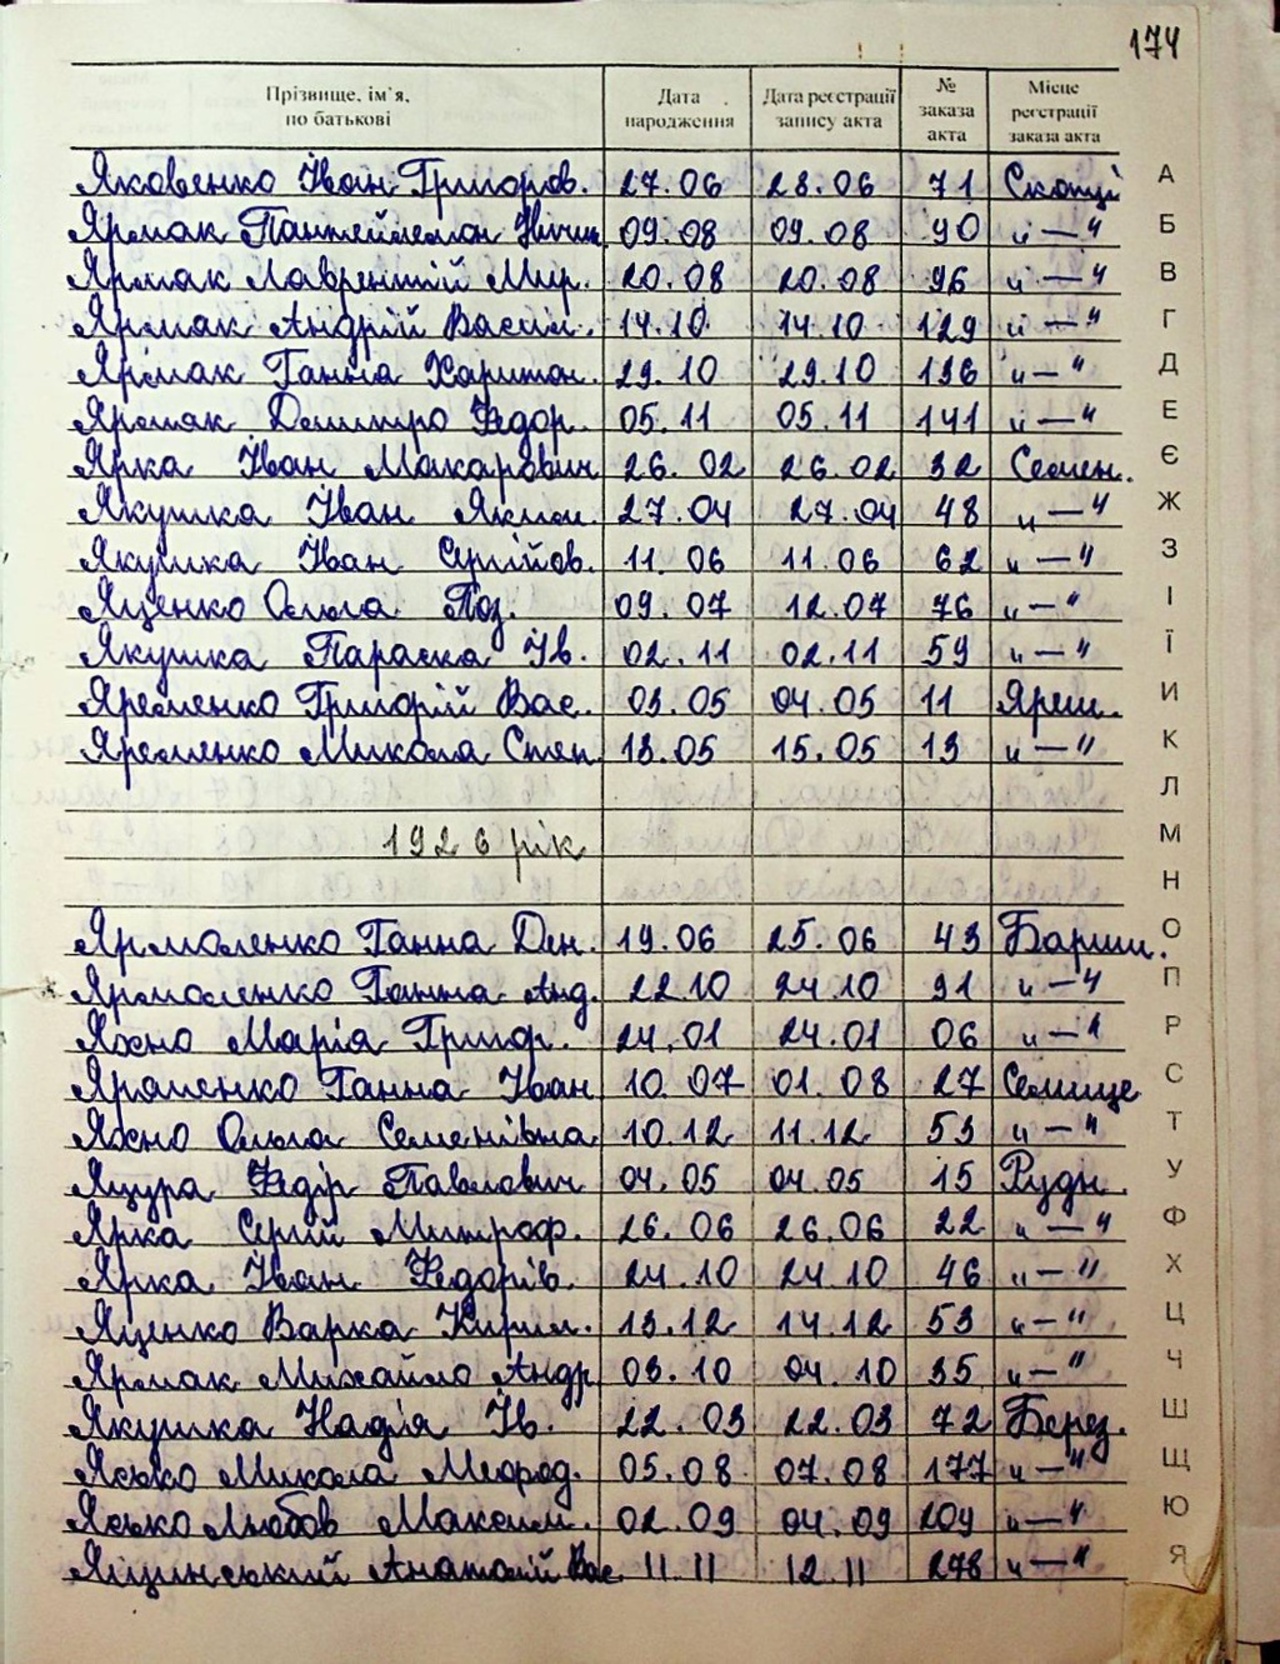 174
Прізвище, ім`я, по батькові Дата народження Дата реєстрації запису акта № заказа акта Місце реєстрації заказа акта
Яковенко Іван Григоров. 27.06 28.06 71 Скопці А
Ярмак Пантеймемон 09.08 09.08 90 "—" Б
Ярмак Лаврентій Мир. 20.08 20.08 96 "—" В
Ярмак Андрій Васил. 14.10 14.10 129 "—" Г
Ярмак Ганна Харитон. 29.10 29.10 136 "—" Д
Ярмак Дмитро Федор. 05.11 05.11 141 "—" Е
Ярка Іван Макарович 26.02 26.02 32 Семен. Є
Якушка Іван Яким. 27.04 27.04 48 "—" Ж
Якушка Іван Сергійов. 11.06 11.06 62 "—" З
Яценко Ольга Поз. 09.07 12.07 76 "—" І
Якушка Параска Ів. 02.11 02.11 59 "—" Ї
Яременко Григорій Вас. 03.05 04.05 11 Яреш. И
Яременко Микола Степ. 13.05 15.05 13 "—" К
Л
1926 рік М
Н
Ярмоленко Ганна Ден. 19.06 25.06 43 Бариш. О
Ярмоленко Ганна Анд. 22.10 24.10 91 "—" П
Яхно Марія Григор. 24.01 24.01 06 "—" Р
Яроменко Ганна Іван 10.07 01.08 27 Селище С
Яхно Ольга Семенівна 10.12 11.12 53 "—" Т
Яцура Федір Павлович 04.05 04.05 15 Рудн. У
Ярка Сергій Митроф. 26.06 26.06 22 "—" Ф
Ярка Іван Федорів. 24.10 24.10 46 "—" Х
Яценко Варка Кирил. 13.12 14.12 53 "—" Ц
Ярмак Михайло Андр. 03.10 04.10 35 "—" Ч
Якушка Надія Ів. 22.03 22.03 72 Берез. Ш
Яські Микола 05.08 07.08 177 "—" Щ
Ясько Любов Максим. 02.09 04.09 209 "—" Ю
Яцинський Анатолій Вас. 11.11 12.11 278 "—" Я